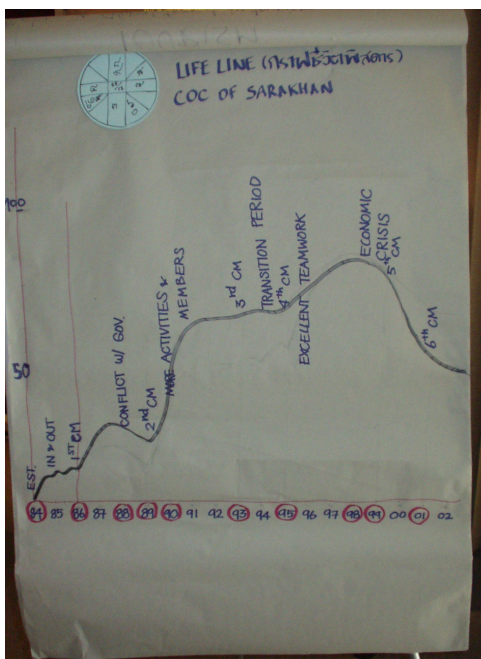 LIFE LINE (กราฟชีวิตพิสดาร)
COC OF SARAKHAN
10
50
EST.
IN & OUT
1ST CM
CONFLICT W/ GOV.
2nd CM
MORE ACTIVITIES &
MEMBERS
3rd CM
TRANSITION PERIOD
4th CM
EXCELLENT TEAMWORK
ECONOMIC
CRISIS
5th CM
6th CM
84 85 86 87 88 89 90 91 92 93 94 95 96 97 98 99 00 01 02